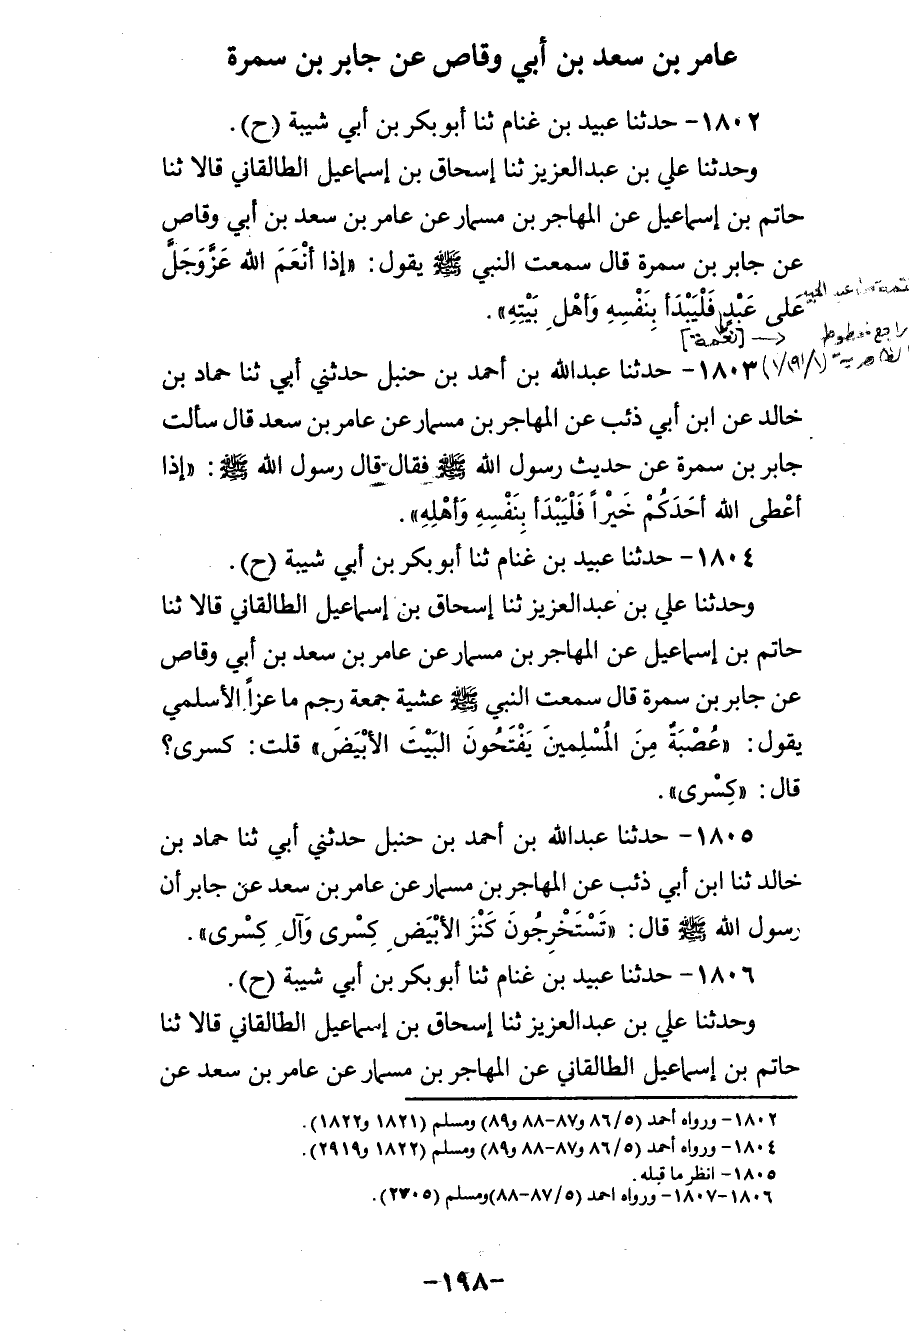 عامر بن سعد بن أبي وقاص عن جابر بن سمرة
١٨٠٢- حدثنا عبيد بن غنام ثنا أبوبكر بن أبي شيبة (ح).
وحدثنا علي بن عبدالعزيز ثنا إسحاق بن إسماعيل الطالقاني قالا ثنا
حاتم بن إسماعيل عن المهاجر بن مسمار عن عامر بن سعد بن أبي وقاص
عن جابر بن سمرة قال سمعت النبي ﷺ يقول: «إذا أنْعَمَ الله عَزَّوَجَلَّ
عَلى عَبْدٍ فَلْيَبْدَأ بِنَفْسِهِ وَأهْلِ بَيْتِهِ».
[نعمة]
راجع مخطوط
الظاهرية (١/٩١/١)
١٨٠٣- حدثنا عبدالله بن أحمد بن حنبل حدثني أبي ثنا حماد بن
خالد عن ابن أبي ذئب عن المهاجر بن مسمار عن عامر بن سعد قال سألت
جابر بن سمرة عن حديث رسول الله ﷺ فقال قال رسول الله ﷺ: «إذا
أعْطى الله أحَدَكُمْ خَيْراً فَلْيَبْدَأ بِنَفْسِهِ وَأهْلِهِ».
١٨٠٤- حدثنا عبيد بن غنام ثنا أبوبكر بن أبي شيبة (ح).
وحدثنا علي بن عبدالعزيز ثنا إسحاق بن إسماعيل الطالقاني قالا ثنا
حاتم بن إسماعيل عن المهاجر بن مسمار عن عامر بن سعد بن أبي وقاص
عن جابر بن سمرة قال سمعت النبي ﷺ عشية جمعة رجم ماعزاً الأسلمي
يقول: «عُصْبَةٌ مِنَ المُسْلِمينَ يَفْتَحُونَ البَيْتَ الأبْيَضَ» قلت: كسرى؟
قال: «كِسْرى».
١٨٠٥- حدثنا عبدالله بن أحمد بن حنبل حدثني أبي ثنا حماد بن
خالد ثنا ابن أبي ذئب عن المهاجر بن مسمار عن عامر بن سعد عن جابر أن
رسول الله ﷺ قال: «تَسْتَخْرِجُونَ كَنْزَ الأبْيَضِ كِسْرى وَآلِ كِسْرى».
١٨٠٦- حدثنا عبيد بن غنام ثنا أبوبكر بن أبي شيبة (ح).
وحدثنا علي بن عبدالعزيز ثنا إسحاق بن إسماعيل الطالقاني قالا ثنا
حاتم بن إسماعيل الطالقاني عن المهاجر بن مسمار عن عامر بن سعد عن
١٨٠٢- ورواه أحمد (٨٦/٥ و٨٧-٨٨ و٨٩) ومسلم (١٨٢١ و١٨٢٢).
١٨٠٤- ورواه أحمد (٨٦/٥ و٨٧-٨٨ و٨٩) ومسلم (١٨٢٢ و٢٩١٩).
١٨٠٥- انظر ما قبله.
١٨٠٦-١٨٠٧- ورواه احمد (٨٧/٥-٨٨)ومسلم (٢٣٠٥).
-١٩٨-